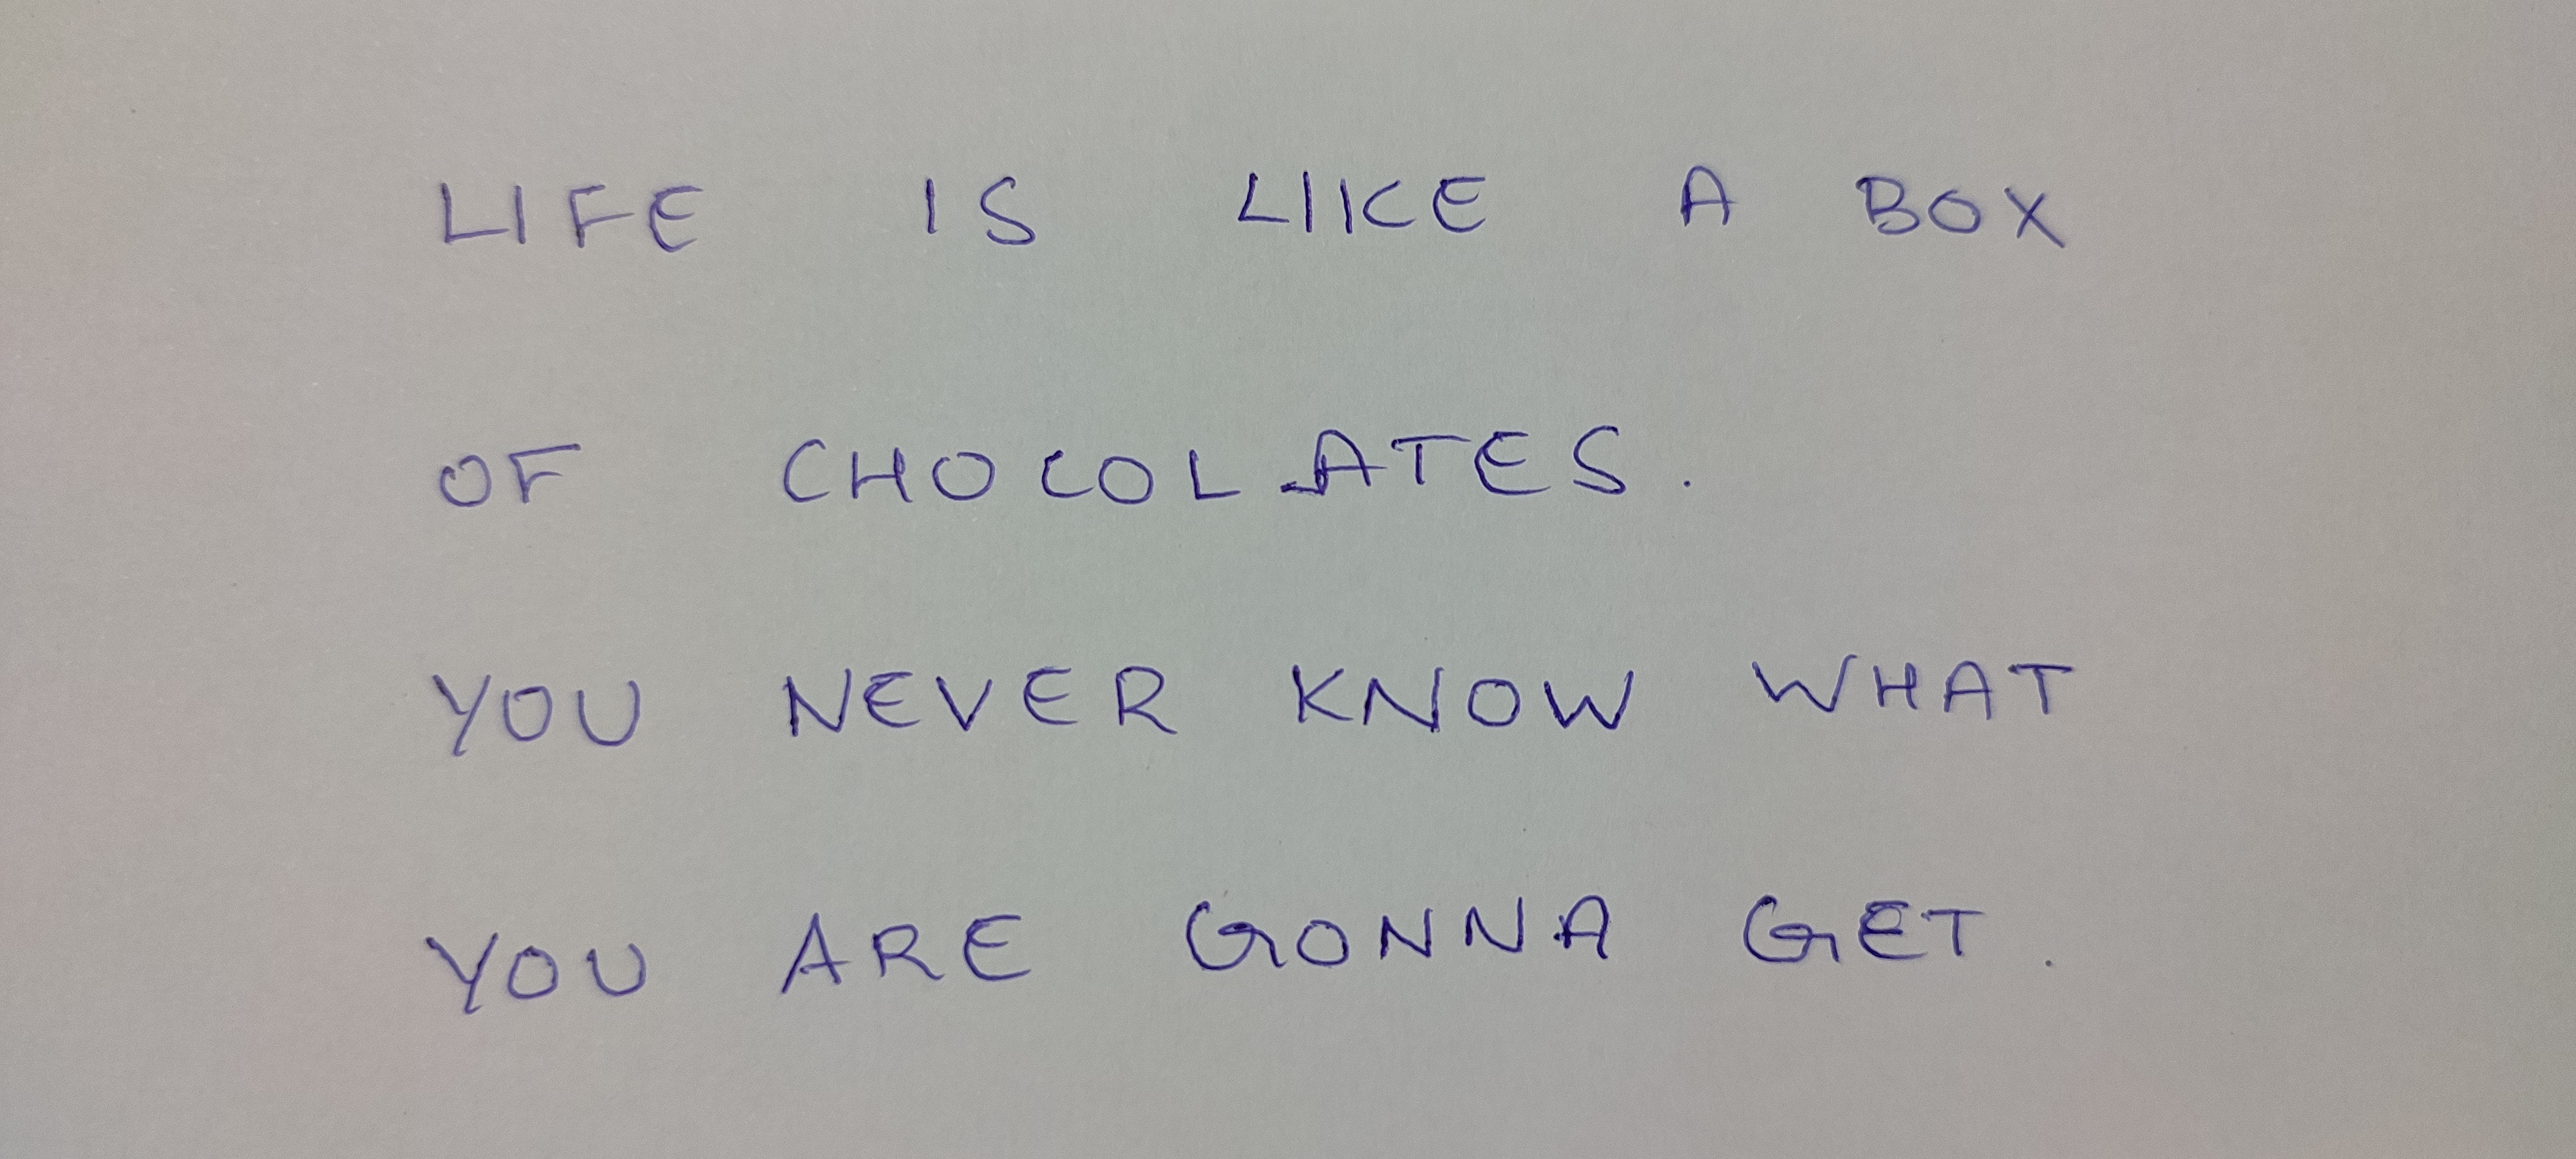 LIFE IS LIKE A BOX
OF CHOCOLATES.
YOU NEVER KNOW WHAT
YOU ARE GONNA GET.